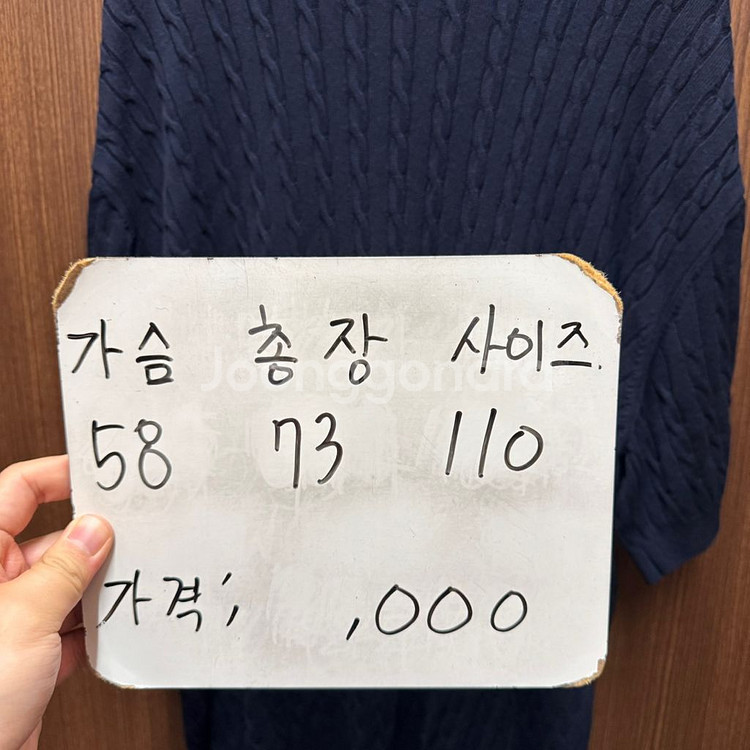 가슴 총장 사이즈.
58 73 110
가격; ,000
Joonggonara